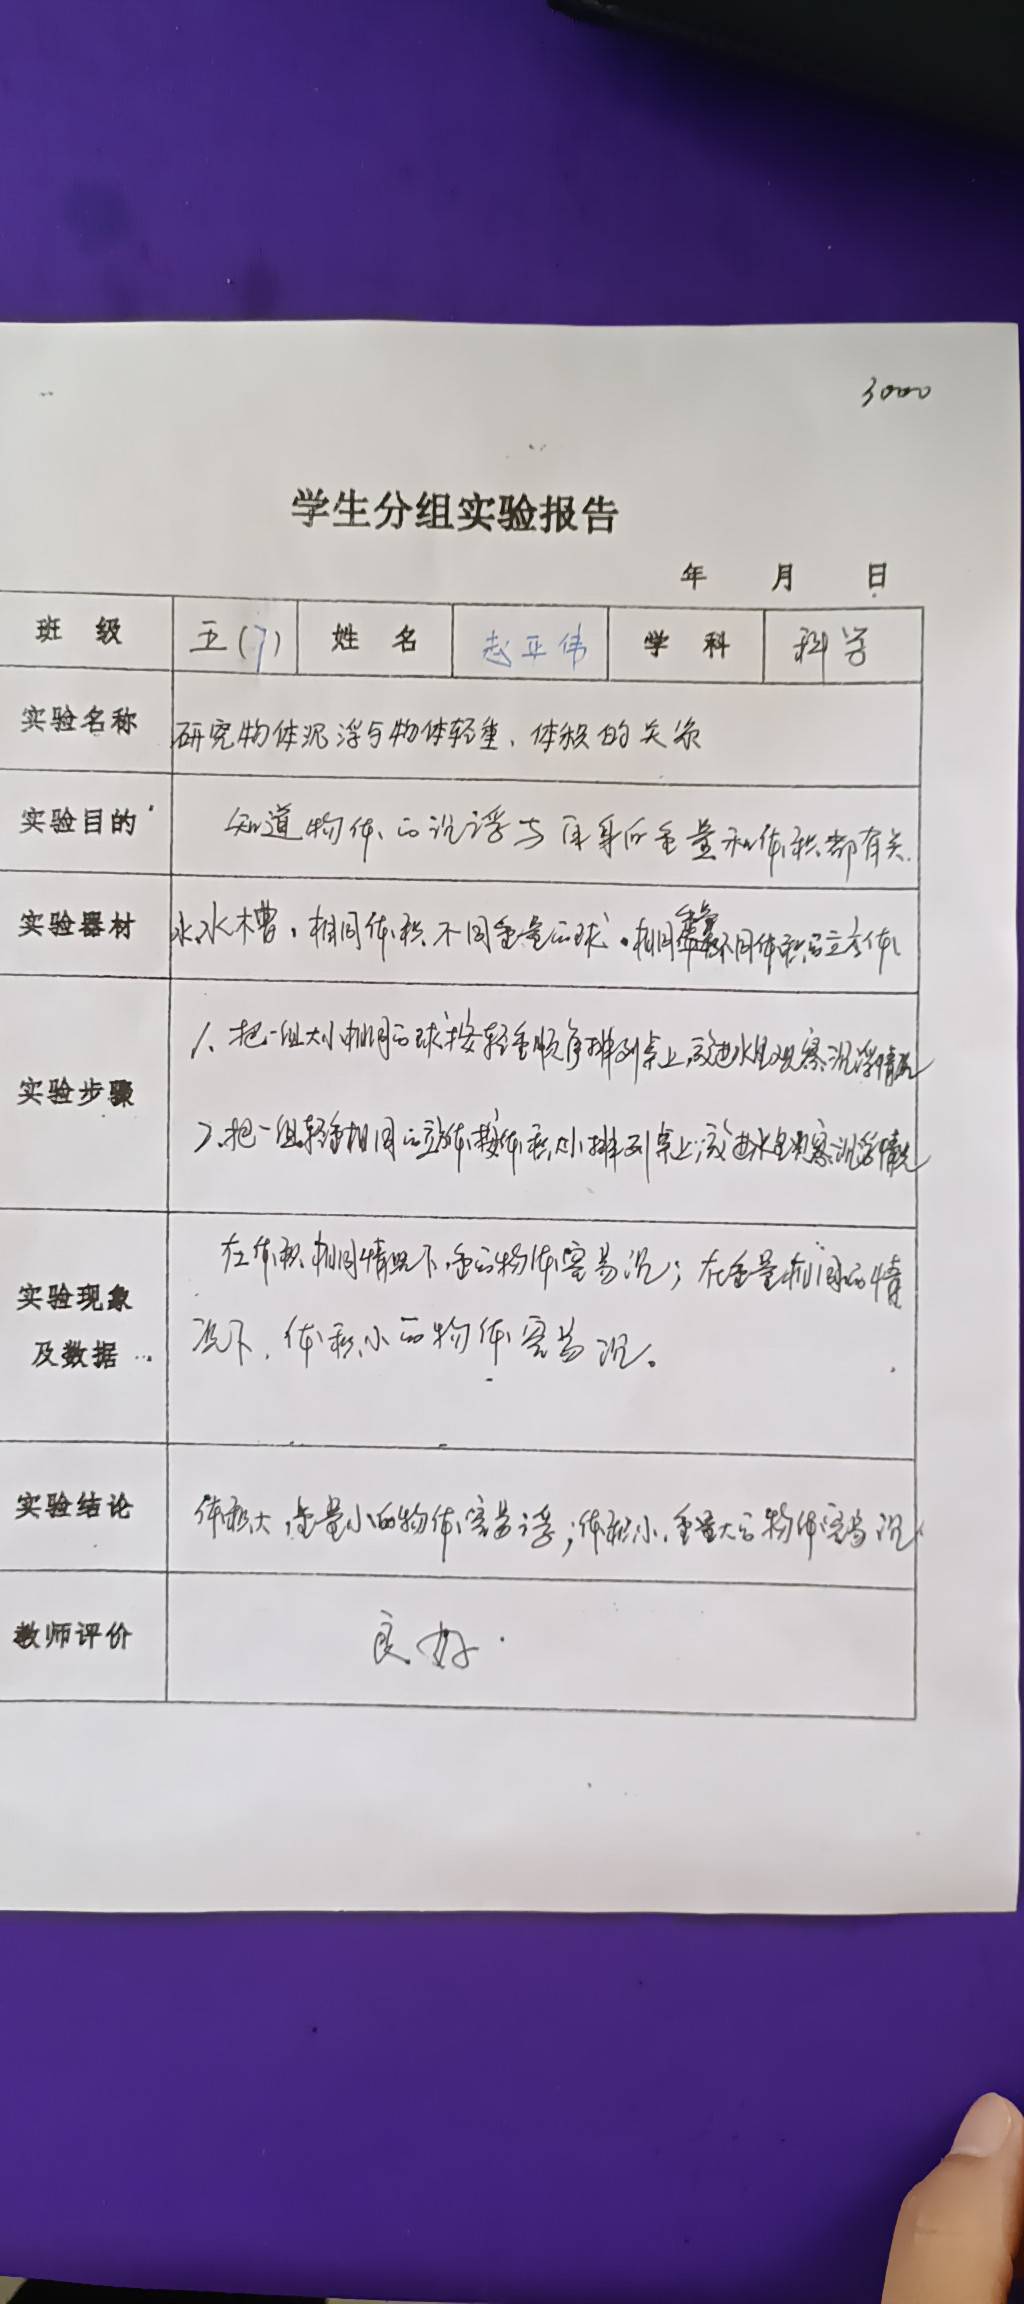 3000
学生分组实验报告
年 月 日
班 级 五(7) 姓 名 赵平伟 学 科 科学
实验名称 研究物体沉浮与物体轻重、体积的关系
实验目的 知道物体的沉浮与自身的重量和体积都有关.
实验器材 水、水槽、相同体积不同重量的球、相同重量不同体积的立方体
实验步骤
1、把一组大小相同的球按轻重顺序排列桌上,放进水里观察沉浮情况
2、把一组轻重相同的立方体按体积大小排列桌上,放进水里观察沉浮情况
实验现象
及数据
在体积相同情况下,重的物体容易沉;在重量相同的情
况下,体积小的物体容易沉。
实验结论 体积大,重量小的物体容易浮;体积小,重量大的物体容易沉
教师评价 良好.